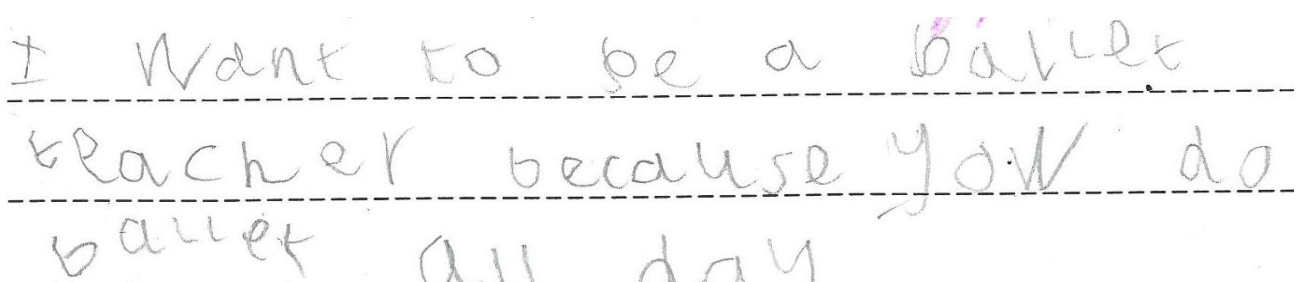 I Want to be a ballet
teacher because you do
ballet all day